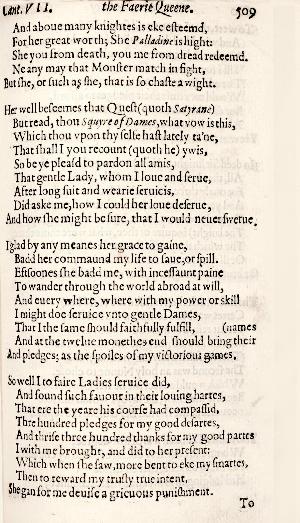 Cant. VII. the Faerie Queene. 509
And aboue many knightes is eke esteemd,
For her great worth; She Palladine is hight:
She you from death, you me from dread redeemd.
Ne any may that Monster match in fight,
But she, or such as she, that is so chaste a wight.
Her well beseemes that Quest (quoth Satyrane)
But read, thou Squyre of Dames, what vow is this,
Which thou vpon thy selfe hast lately ta'ne,
That shall I you recount (quoth he) ywis,
So be ye pleasd to pardon all amis,
That gentle Lady, whom I loue and serue,
After long suit and wearie seruicis,
Did aske me, how I could her loue deserue,
And how she might be sure, that I would neuer swerue.
I glad by any meanes her grace to gaine,
Badd her commaund my life to saue, or spill.
Eftsoones she badd me, with incessaunt paine
To wander through the world abroad at will,
And euery where, where with my power or skill
I might doe seruice vnto gentle Dames,
That I the same should faithfully fulfill, (names
And at the twelue monethes end should bring their
And pledges; as the spoiles of my victorious games.
So well I to faire Ladies seruice did,
And found such fauour in their louing hartes,
That ere the yeare his course had compassid,
Thre hundred pledges for my good desartes,
And thrise three hundred thanks for my good partes
I with me brought, and did to her present:
Which when she saw, more bent to eke my smartes,
Then to reward my trusty true intent,
She gan for me deuise a grieuous punishment.
To